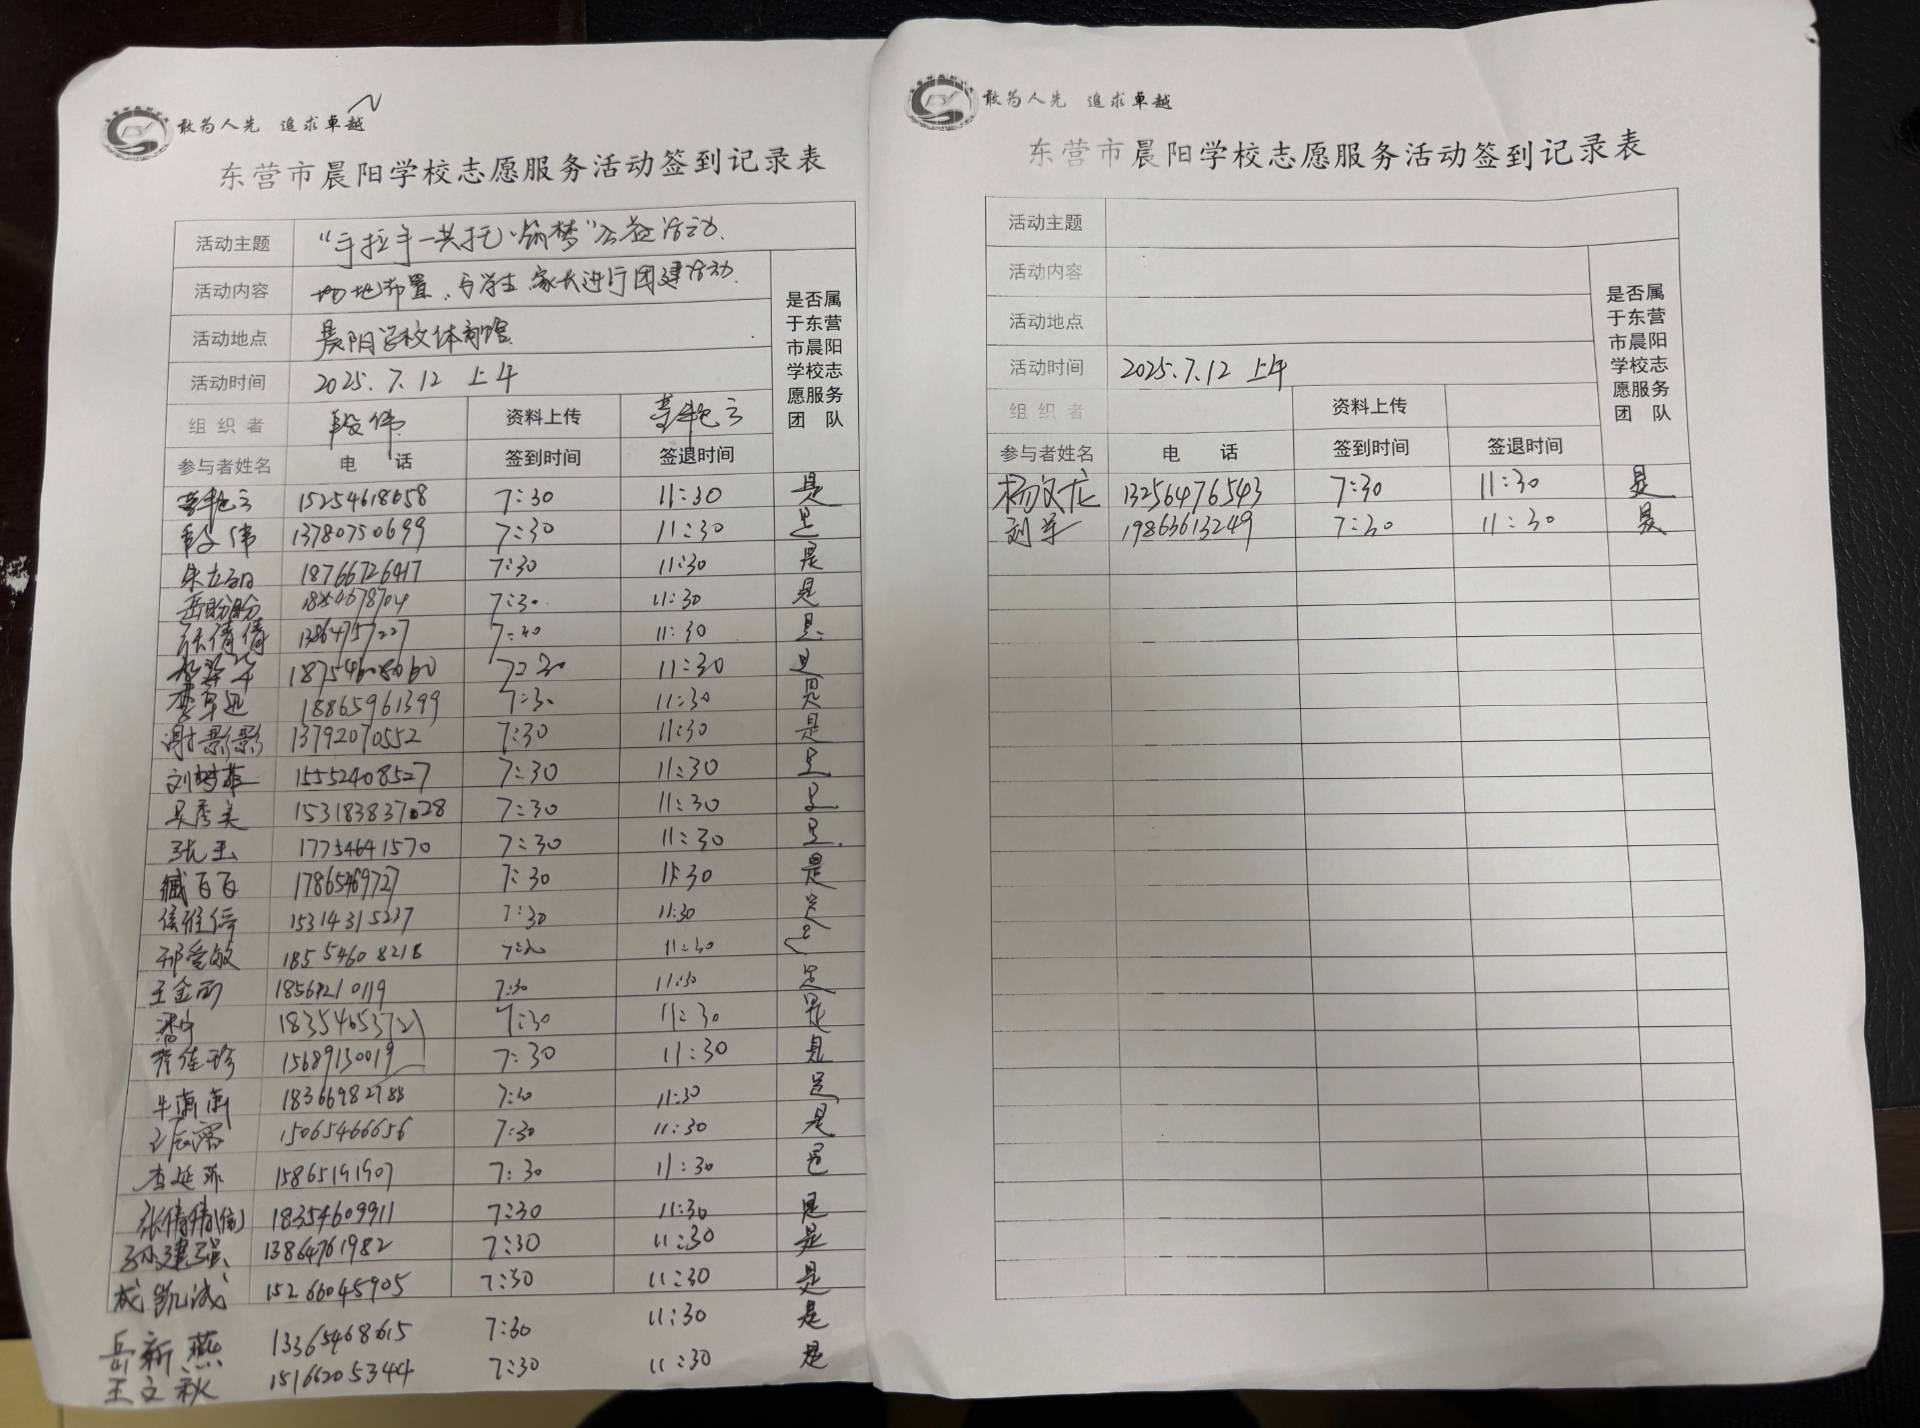 敢为人先 追求卓越
东营市晨阳学校志愿服务活动签到记录表
活动主题 “手拉手一共托心筑梦”公益活动.
活动内容 场地布置、与学生、家长进行团建活动.
活动地点 晨阳学校体育馆.
活动时间 2025.7.12 上午
是否属于东营市晨阳学校志愿服务团队
组织者 段伟 资料上传
参与者姓名 电话 签到时间 签退时间
15254618658 7:30 11:30 是
段伟 13780750699 7:30 11:30 是
18766726417 7:30 11:30 是
岳盼盼 7:30 11:30 是
张倩倩 13864757227 7:30 11:30 是
18754608060 7:30 11:30 是
18865961399 7:30 11:30 是
谢影影 13792070552 7:30 11:30 是
刘梦菲 15552408527 7:30 11:30 是
吴秀美 7:30 11:30 是
张玉 17754641570 7:30 11:30 是
臧百百 17865469727 7:30 11:30 是
侯雅倩 15314315237 7:30 11:30 是
邢爱敏 18554608218 7:30 11:30
王金雨 7:30 11:30 是
潘宁 18354653721 7:30 11:30 是
崔佳珍 15689130019 7:30 11:30 是
牛南南 18366982788 7:30 11:30 是
15065466656 7:30 11:30 是
李延菲 15865191907 7:30 11:30 是
张倩倩 18354609911 7:30 11:30 是
孙建强 13864761982 7:30 11:30 是
成凯诚 15266045905 7:30 11:30 是
岳新燕 13365468615 7:30 11:30 是
王文秋 15166205344 7:30 11:30 是
敢为人先 追求卓越
东营市晨阳学校志愿服务活动签到记录表
活动主题
活动内容
活动地点
活动时间 2025.7.12 上午
是否属于东营市晨阳学校志愿服务团队
组织者 资料上传
参与者姓名 电话 签到时间 签退时间
杨文龙 13256476543 7:30 11:30 是
刘军 19863613249 7:30 11:30 是